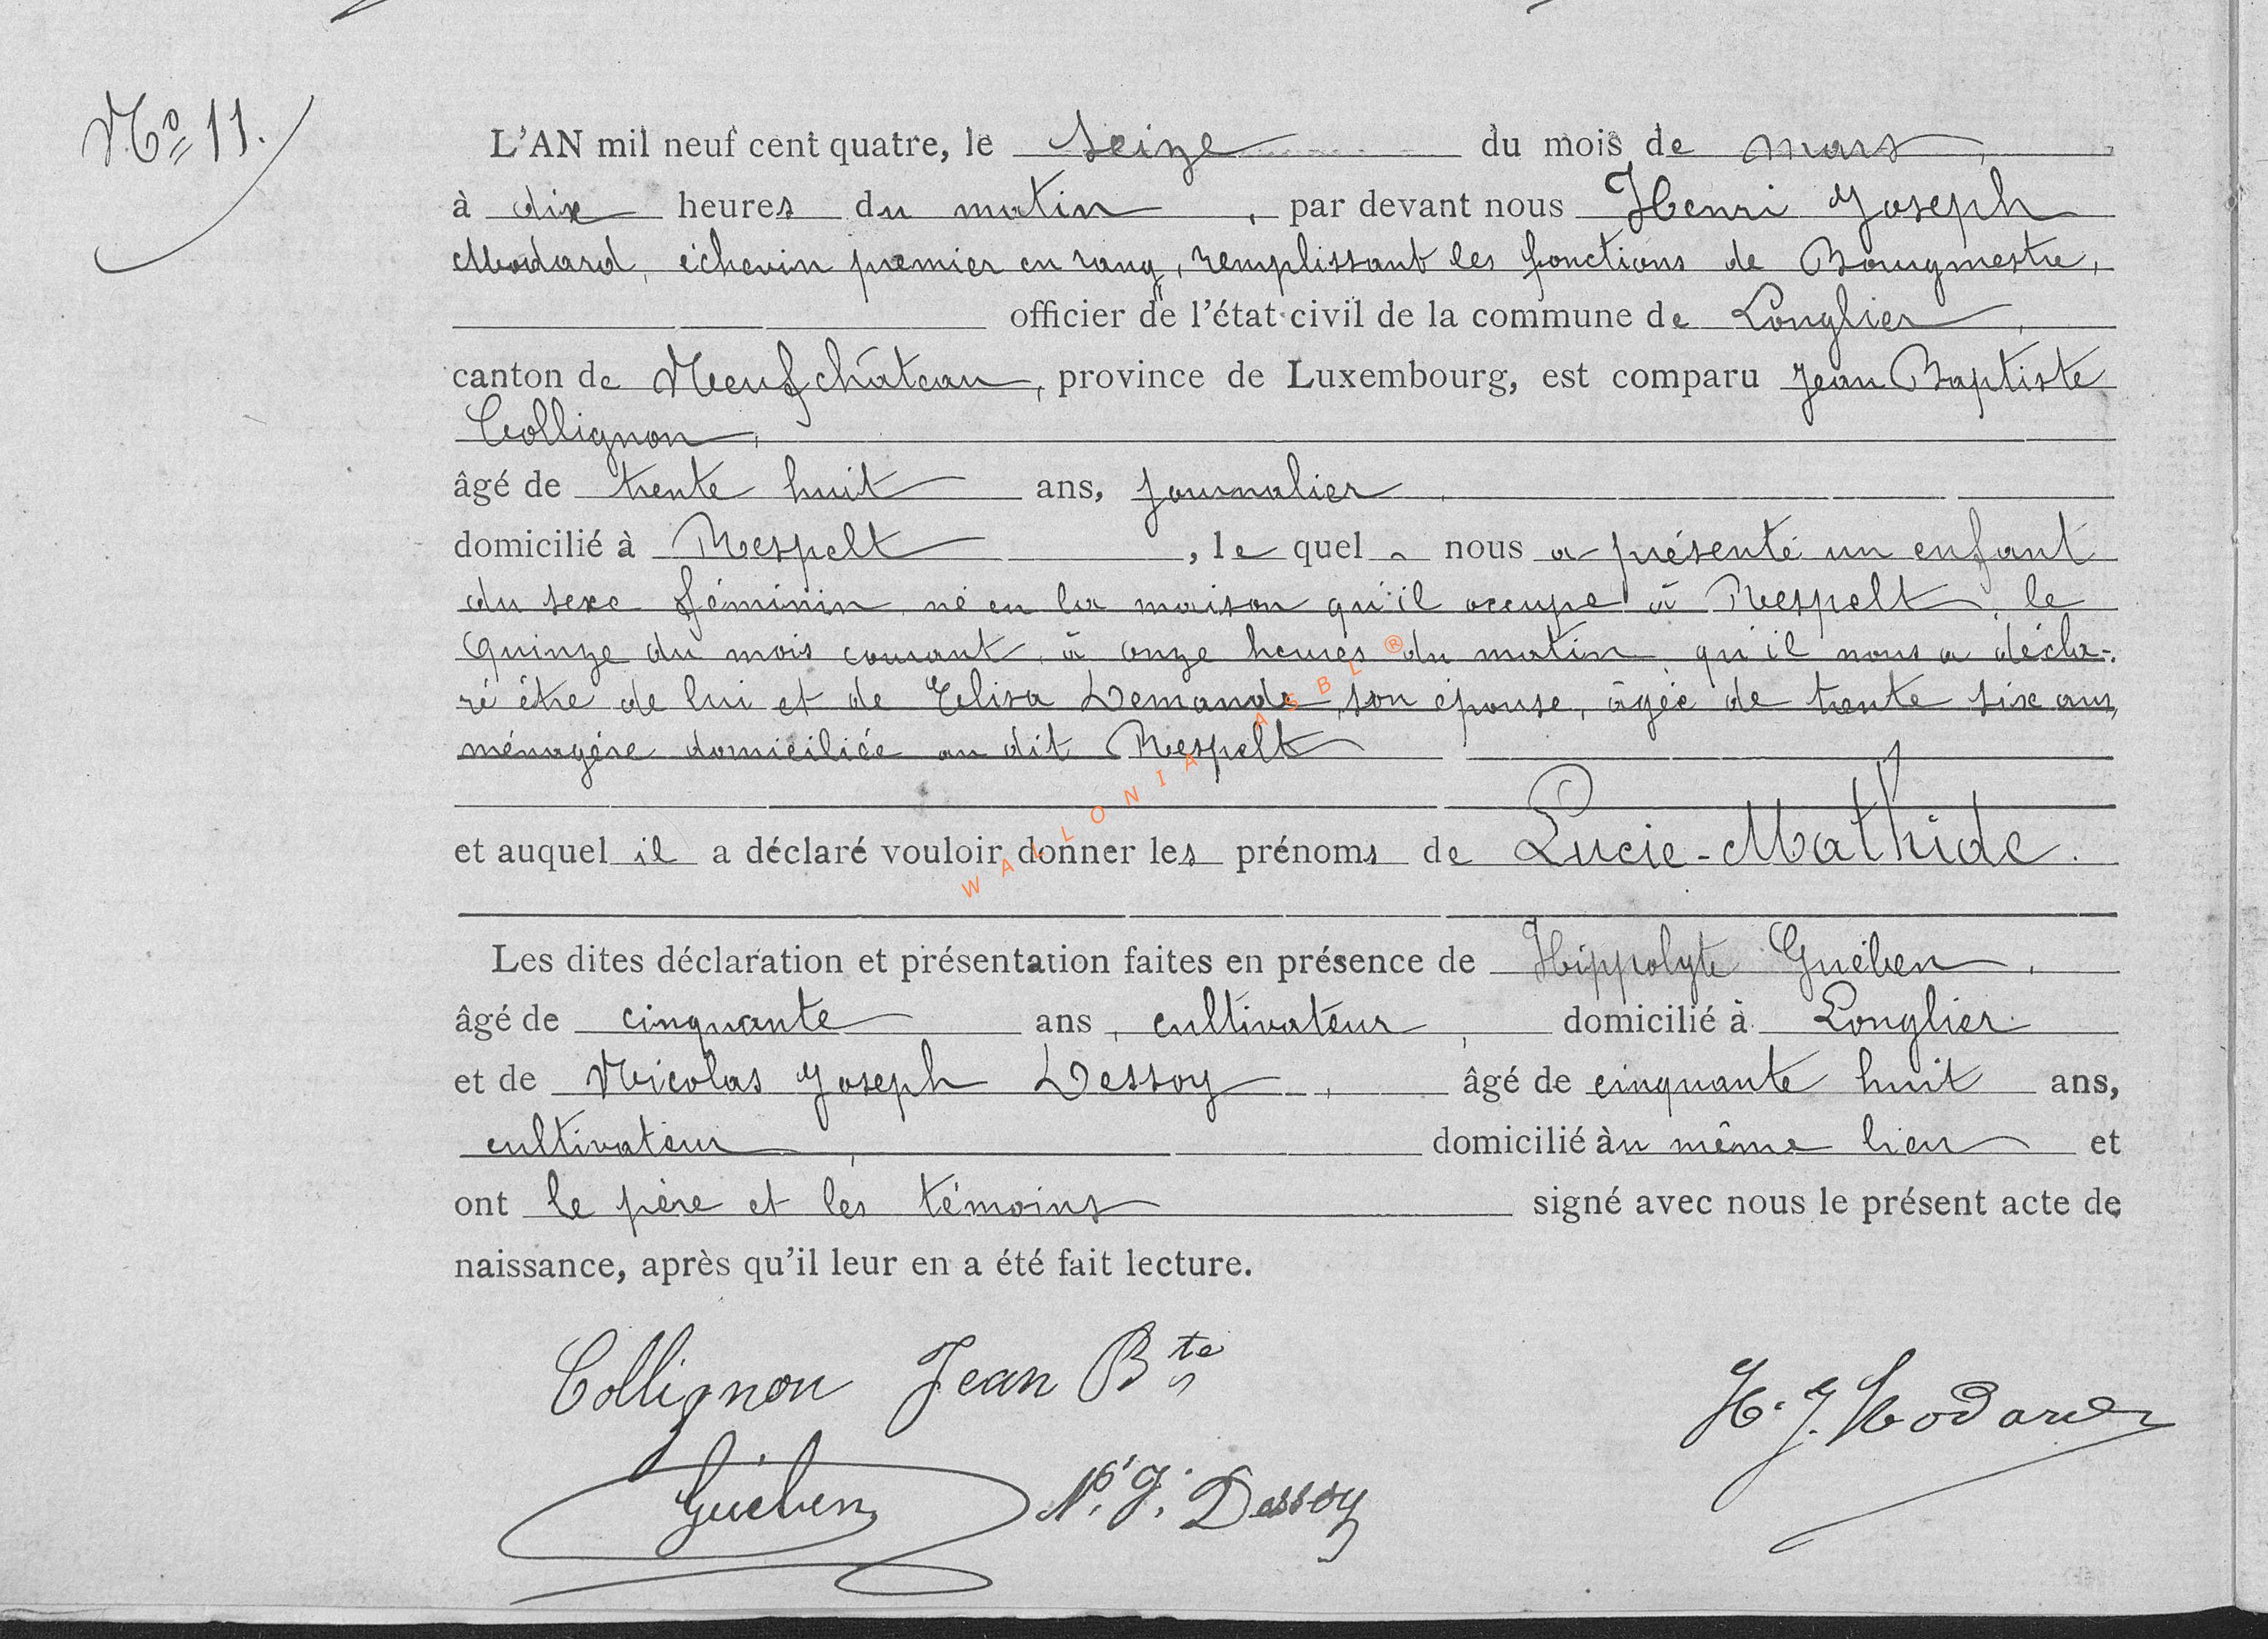 Nº 11.
L'AN mil neuf cent quatre, le seize du mois de mars,
à dix heures du matin, par devant nous Henri Joseph
Modard, échevin premier en rang, remplissant les fonctions de Bourgmestre,
officier de l'état civil de la commune de Longlier,
canton de Neufchâteau, province de Luxembourg, est comparu Jean Baptiste
Collignon,
âgé de trente huit ans, journalier,
domicilié à Respelt, le quel nous a présenté un enfant
du sexe féminin, né en la maison qu'il occupe à Respelt, le
quinze du mois courant, à onze heures du matin, qu'il nous a décla-
ré être de lui et de Elisa Demande, son épouse, âgée de trente six ans,
ménagère domiciliée au dit Respelt
et auquel il a déclaré vouloir donner les prénoms de Lucie-Mathide.
Les dites déclaration et présentation faites en présence de Hippolyte Guében,
âgé de cinquante ans, cultivateur, domicilié à Longlier
et de Nicolas Joseph Dessoy, âgé de cinquante huit ans,
cultivateur, domicilié àu même lieu et
ont le père et les témoins signé avec nous le présent acte de
naissance, après qu'il leur en a été fait lecture.
Collignon Jean Bte
H. J. Modard
Guében N. J. Dessoy
WALLONIA ASBL ®